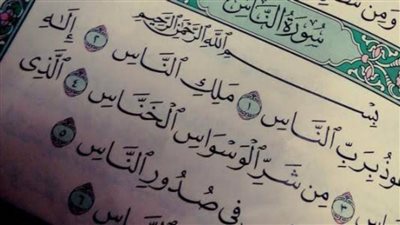 وَمِن
سُورَةُ النَّاسِ
بِسْمِ ٱللَّهِ ٱلرَّحْمَٰنِ ٱلرَّحِيمِ
وذُ بِرَبِّ ٱلنَّاسِ ١ مَلِكِ ٱلنَّاسِ ٢ إِلَٰهِ
اسِ ٣ مِن شَرِّ ٱلْوَسْوَاسِ ٱلْخَنَّاسِ ٤ ٱلَّذِى
فِى صُدُورِ ٱلنَّاسِ ٥
اسِ ٦